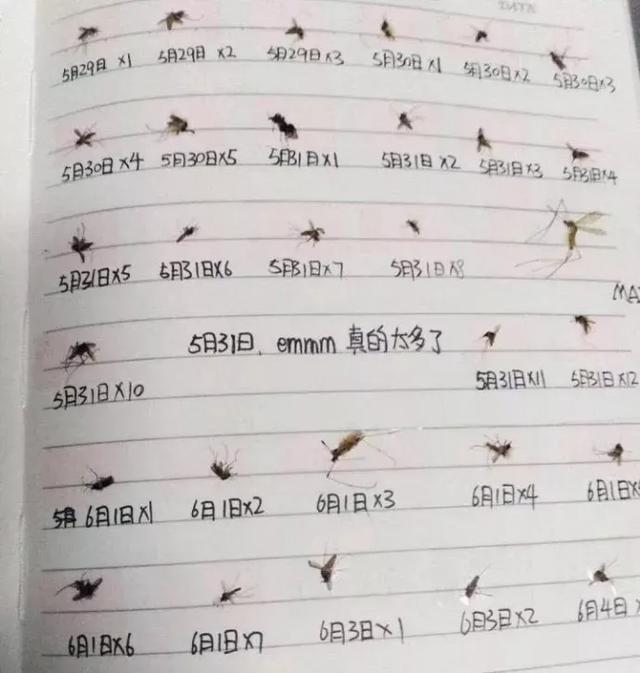 DATE
5月29日 x1 5月29日 x2 5月29日x3 5月30日x1 5月30日x2 5月30日x3
5月30日x4 5月30日x5 5月31日x1 5月31日x2 5月31日x3 5月31日x4
5月31日x5 5月31日x6 5月31日x7 5月31日x8
5月31日, emmm 真的太多了
5月31日x10 5月31日x11 5月31日x12
6月1日x1 6月1日x2 6月1日x3 6月1日x4 6月1日x
6月1日x6 6月1日x7 6月3日x1 6月3日x2 6月4日x